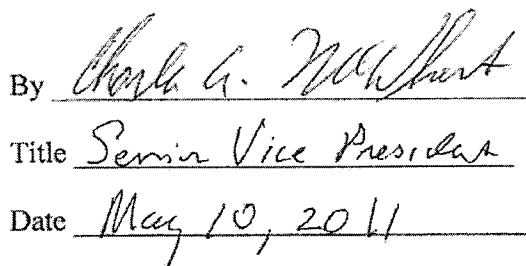 By Charla A. McWhort
Title Senior Vice President
Date May 10, 2011